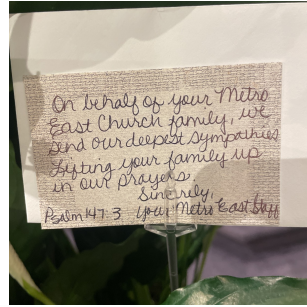 On behalf of your Metro
East Church family, we
send our deepest sympathies
Lifting your family up
in our prayers.
Sincerely,
Psalm 147:3 Your Metro East Staff